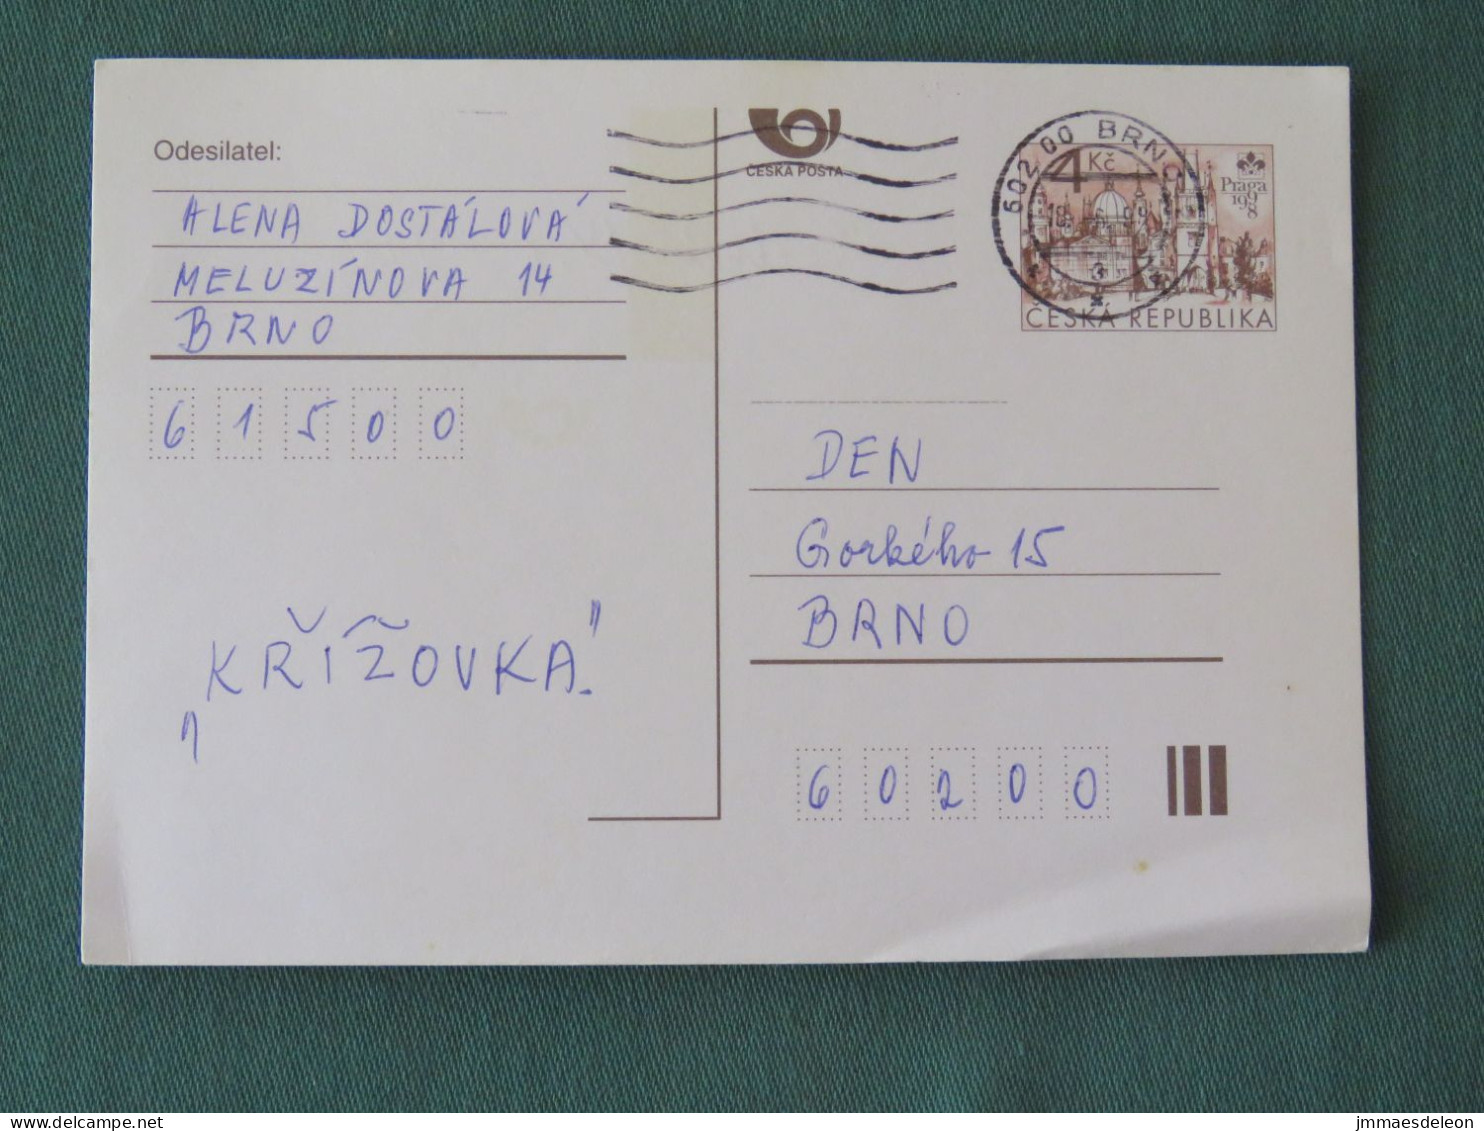 Odesilatel:
ALENA DOSTÁLOVÁ
MELUZÍNOVA 14
BRNO
61500
„KŘÍŽOVKA."
ČESKÁ POŠTA
602 00 BRNO
4 Kč
Praga
1998
ČESKÁ REPUBLIKA
DEN
Gorkého 15
BRNO
60200
jmmaesdeleon